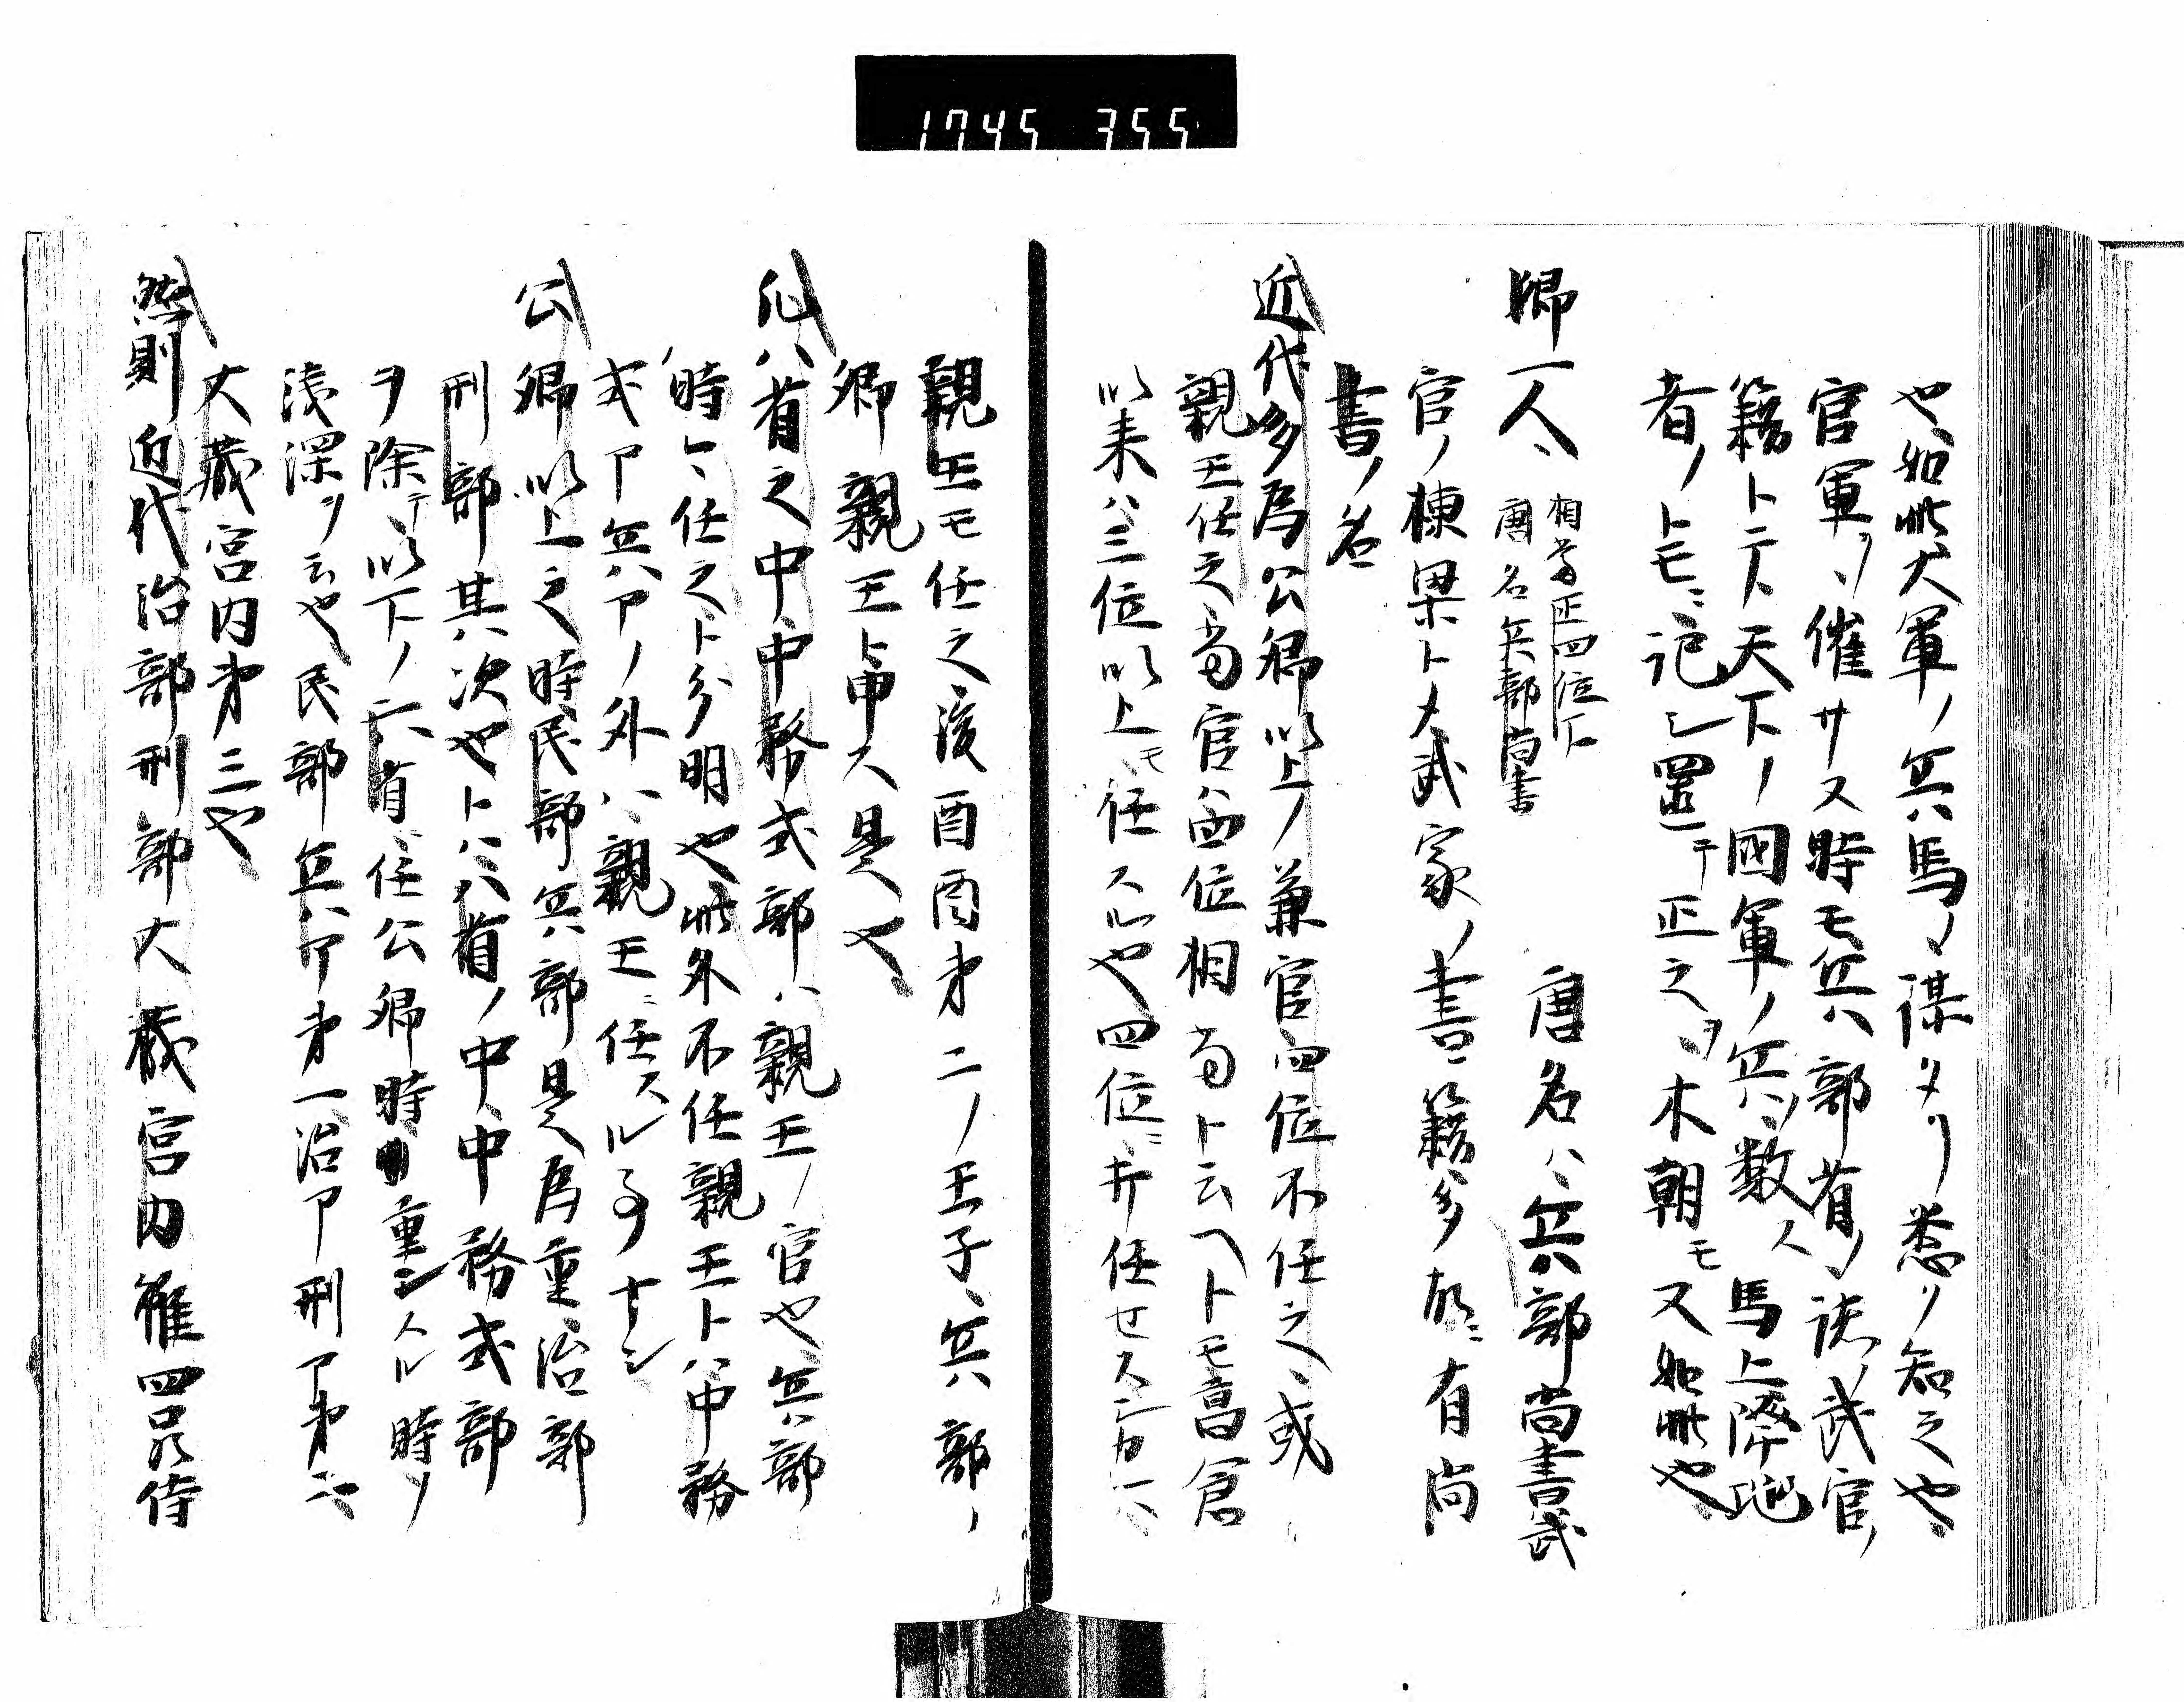 1745 355
也如此大軍ノ兵馬ノ謀タリ悉ク知之也
官軍ヲ催サス時モ兵八部省ノ諸武官
籍トテ天下ノ國軍ノ兵ノ数人馬上降地
者ノトモニ記シ置テ正之ヲ本朝モ又如此也
卿一人 相當正四位下 唐名兵部尚書 唐名ハ兵部尚書武
官ノ棟梁トメ武家ノ書籍多故ニ有尚
書ノ名
近代多為公卿以上ノ兼官四位不任之或
親王任之當官ハ四位相當ト云ヘトモ菖倉
以来ハ三位以上モ任スル也四位ニ并任セス
親王モ任之後酉酉才二ノ王子兵部ノ
卿親王ト申ス是也
凡八省之中中務式部ハ親王ノ官也兵部
時々任之ト分明也此外不任親王トハ中務
式ア兵アノ外ハ親王ニ任スル事ナシ
公卿以上之時民部兵部是為重治部
刑部其次也トハ八省ノ中中務式部
ヲ除テ以下ノ六省ニ任公卿時重シスル時ノ
浅深ヲ云也民部兵ア才一治ア刑ア才二
大蔵宮内才三也
然則近代治部刑部大蔵宮内雖四品侍